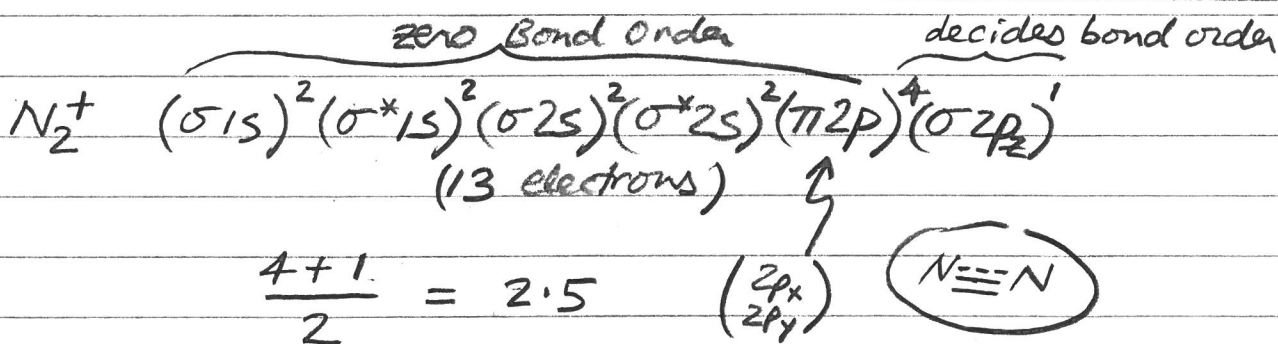 zero Bond Order decides bond order
N₂⁺ (σ1s)² (σ*1s)² (σ2s)² (σ*2s)² (π2p)⁴ (σ2p_z)¹
(13 electrons)
(4 + 1)/2 = 2.5 (2px 2py) N≡N